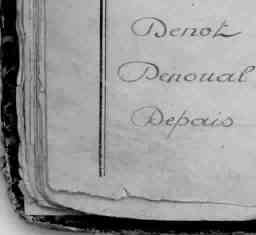 Denot
Denoual
Depais